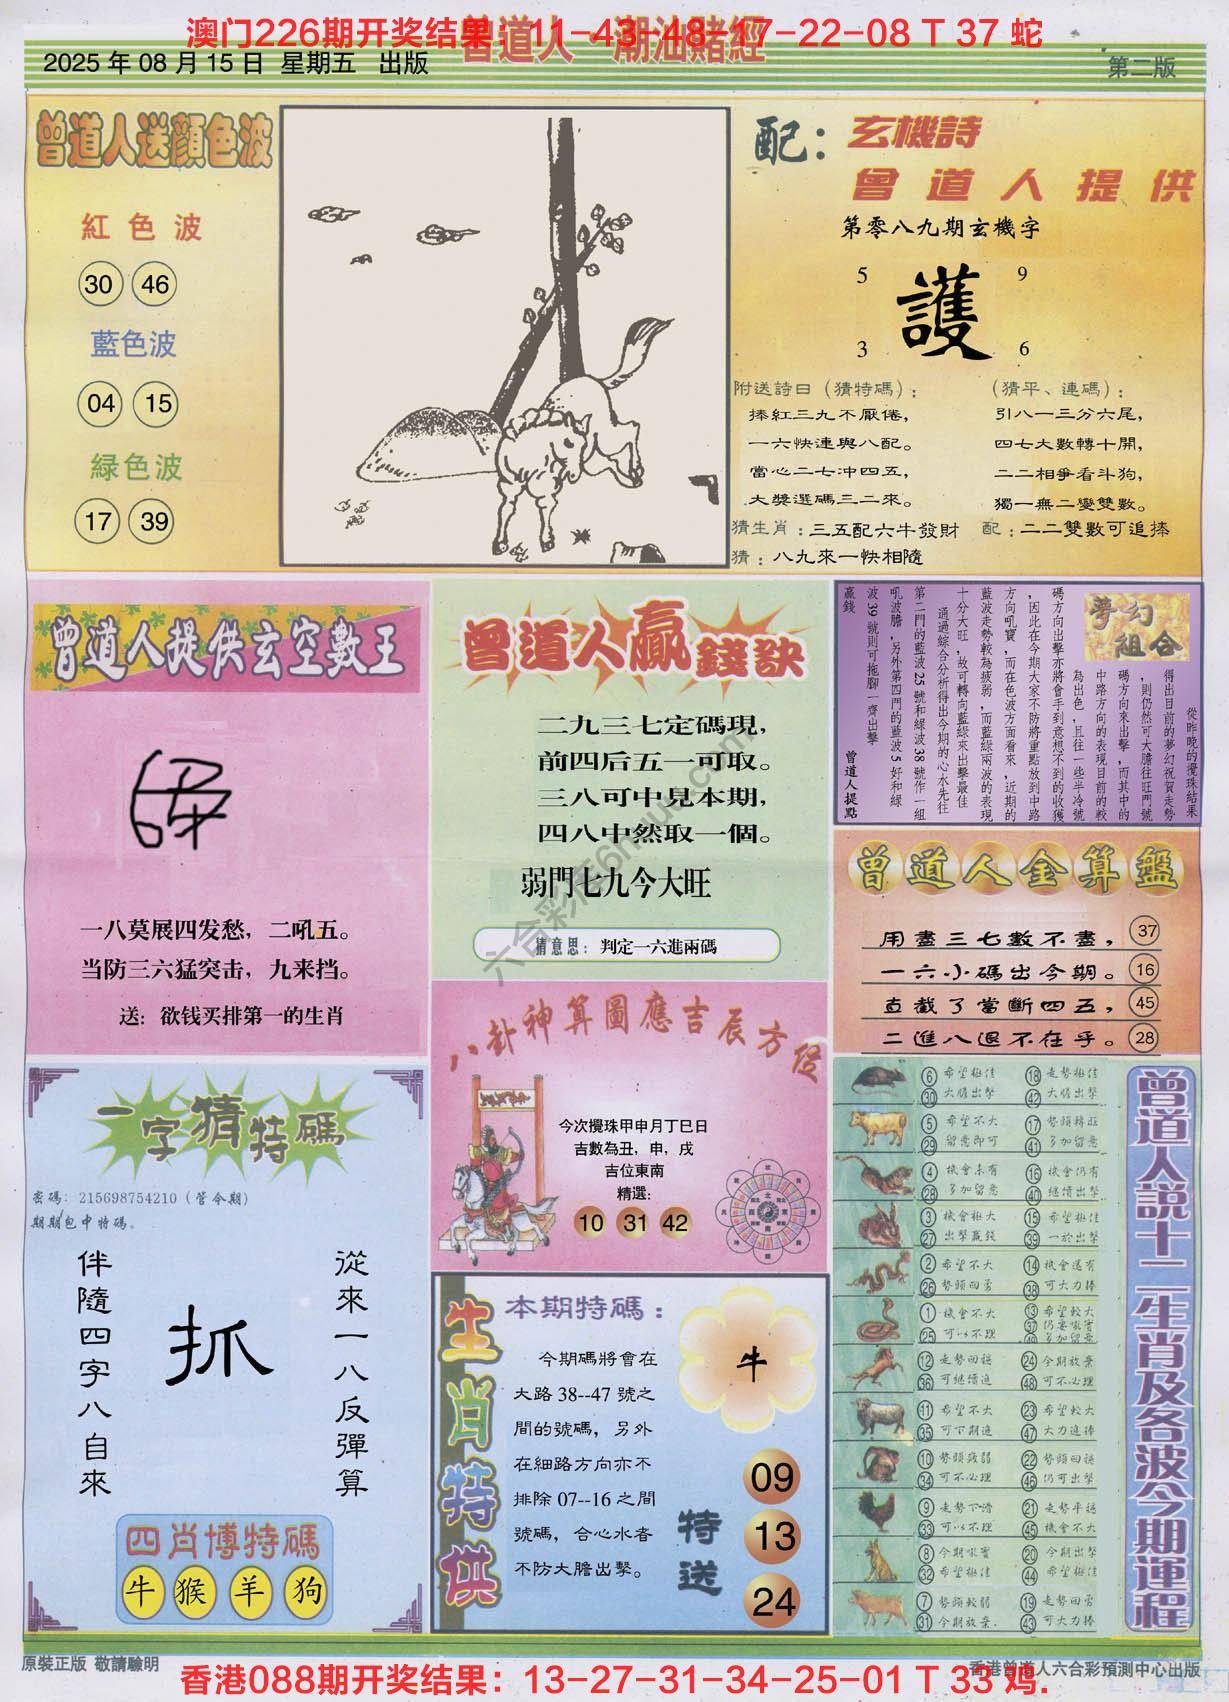 澳门226期开奖结果：11-43-48-17-22-08 T 37 蛇
曾道人·潮汕賭經
2025 年 08 月 15 日 星期五 出版
第二版
曾道人送顏色波
紅色波
30 46
藍色波
04 15
緑色波
17 39
配：
玄機詩
曾道人提供
第零八九期玄機字
5 9
護
3 6
附送詩曰（猜特碼）：
捧紅三九不厭倦，
一六快連與八配。
當心二七冲四五，
大獎選碼三二來。
（猜平、連碼）：
引八一三分六尾，
四七大數轉十開，
二二相爭看斗狗，
獨一無二變雙數。
猜生肖：三五配六牛發財
配：二二雙數可追捧
猜：八九來一快相隨
曾道人提供玄空數王
一八莫展四发愁，二吼五。
当防三六猛突击，九来挡。
送：欲钱买排第一的生肖
曾道人贏錢訣
二九三七定碼現，
前四后五一可取。
三八可中見本期，
四八中然取一個。
弱門七九今大旺
猜意思：判定一六進兩碼
夢幻
組合
從昨晚的攪珠結果
得出目前的夢幻祝賀走勢
，則仍然可大膽往旺門號
碼方向來出擊，而其中的
中路方向的表現目前的較
為出色，且往一些半冷號
碼方向出擊亦將會手到意想不到的收獲
，因此在今期大家不防將重點放到中路
方向吼寶，而在色波方面看來，近期的
藍波走勢較為疲弱，而藍綠兩波的表現
十分大旺，故可轉向藍綠來出擊最佳
通過綜合分析得出今期的心水先往
第二門的藍波 25 號和綠波 38 號作一組
吼波膽，另外第四門的藍波 5 好和綠
波 39 號則可拖腳一齊出擊
贏錢
曾道人提點
曾道人金算盤
用盡三七數不盡， 37
一六小碼出今期。 16
直截了當斷四五， 45
二進八退不在乎。 28
八卦神算圖應吉辰方位
今次攪珠甲申月丁巳日
吉數為丑，申，戌
吉位東南
精選：
10 31 42
一字猜特碼
密碼：215698754210（管令期）
期期包中特碼。
從來一八反彈算
抓
伴隨四字八自來
四肖博特碼
牛 猴 羊 狗
生肖特供
本期特碼：
今期碼將會在
大路 38--47 號之
間的號碼，另外
在細路方向亦不
排除 07--16 之間
號碼，合心水者
不防大膽出擊。
牛
特送
09
13
24
曾道人説十二生肖及各波今期運程
6 希望極佳 18 走勢極佳
30 大膽出擊 42 大膽出擊
5 希望不大 17 勢頭轉旺
29 留意即可 41 多加留意
4 機會未有 16 機會仍有
28 多加留意 40 繼續出擊
3 機會極大 15 希望極佳
27 出擊贏錢 39 一於出擊
2 希望不大 14 機會送有
26 勢頭回勇 38 可大力捧
1 機會不大 13 希望較大
25 可以不理 37 仍要吼實
49 多加留意
12 走勢回穩 24 今期放棄
36 可繼續追 48 可不必理
11 希望不大 23 希望較大
35 可下期追 47 大力追捧
10 勢頭疲弱 22 勢頭回穩
34 可不必理 46 仍可出擊
9 走勢下滑 21 走勢平穩
33 可以不理 45 機會不大
8 今期吼實 20 今期出擊
32 希望極佳 44 希望極佳
7 勢頭較弱 19 走勢回勇
31 今期放棄. 43 可大力捧
原裝正版 敬請驗明
香港曾道人六合彩預測中心出版
香港088期开奖结果：13-27-31-34-25-01 T 33 鸡.